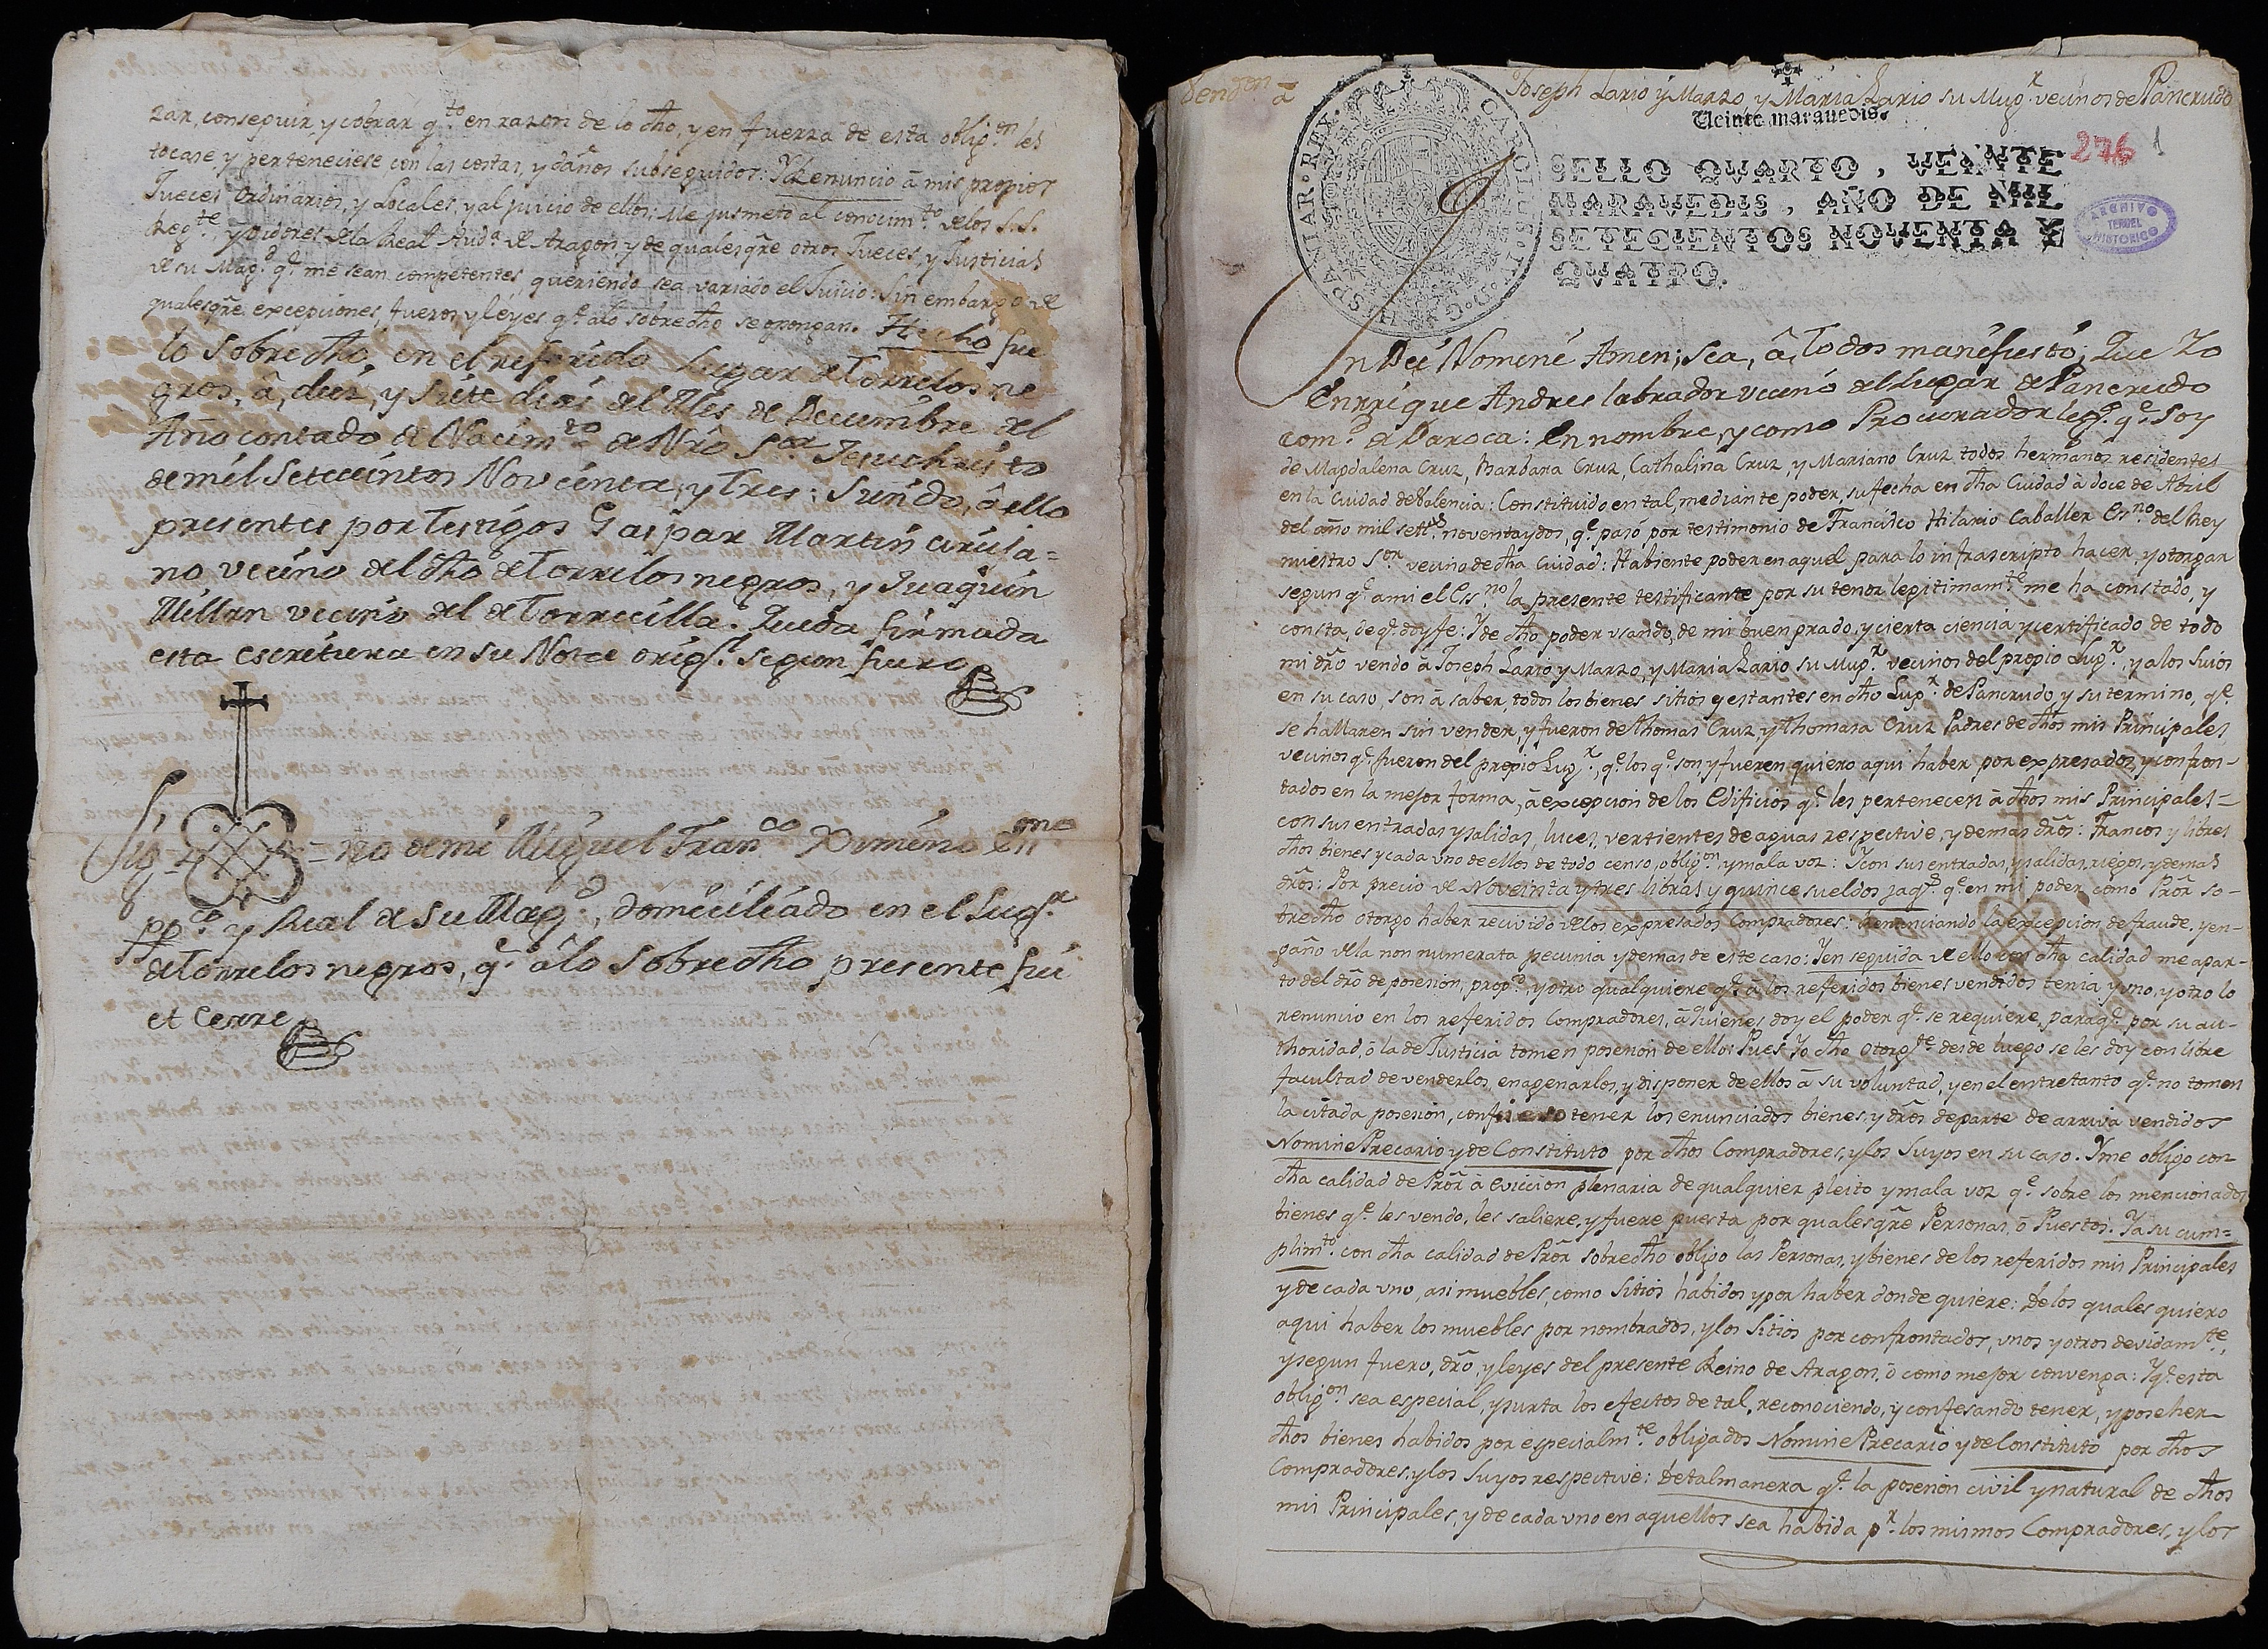 zar, conseguir, y cobrar q.to en razon de lo dho, y en fuerza de esta oblig.on les
tocase y perteneciese con las costas, y daños subseguidos: Y Renuncio â mis propios
Jueces Ordinarios, y Locales, y al juicio de ellos; Me jusmeto al conocim.to de los S.S.
Reg.te y Oidores de la Real Aud.a de Aragon y de qualesqre otros Jueces, y Justicias
de su Mag.d q.e me sean competentes, queriendo sea variado el Juicio: Sin embargo de
qualesqre excepciones, fueros y leyes q.e alo sobredho se opongan. Hecho fue
lo sobredho, en el referido Lugar de Torrelos ne
gros, â, diez, y siete dias del Mes de Deciembre del
Año contado de Nacim.to de Nro S.or Jesuchristo
de mil Setecientos Noventa, y Tres; siendo, â ello
presentes por Testigos Gaspar Martin ciruja=
no vecino del dho de Torrelos negros, y Juaquin
Millan vecino del de Torrecilla. Queda firmada
esta escritura en su Nota orig.l segun fuero
Sig=no de mi Miguel Fran.co Ximeno Ess.no
pp.co y Real de su Mag.d, domiciliado en el Lug.r
de Torrelos negros, q.e âlo Sobredho presente fui
et Cerre
Vendon â Joseph Lario y Marzo, y Maria Lario su Mug.r vecinos de Pancrudo
Veinte maravedis.
276 1
HISPANIAR. REX. CAROLUS IV. D. G.
SELLO QUARTO, VEINTE
MARAVEDIS, AÑO DE MIL
SETECIENTOS NOVENTA Y
QUATRO.
ARCHIVO
TERUEL
HISTORICO
In Dei Nomine Amen; sea, â, Todos manifiesto; Que Yo
Enrrique Andres labrador vecino del Lugar de Pancrudo
com.d de Daroca: En nombre, y como Procurador leg.mo q.e soy
de Magdalena Cruz, Barbara Cruz, Cathalina Cruz, y Mariano Cruz todos hermanos residentes
en la Ciudad de Valencia: Constituido en tal, mediante poder, su fecha en dha Ciudad â doce de Abril
del año mil sett.s noventa y dos q.e pasó por testimonio de Francisco Hilario Caballer Es.no del Rey
nuestro S.or vecino de dha Ciudad: Habiente poder en aquel para lo infrascripto hacer, y otorgar
segun q.e ami el Es.no la presente testificante por su tenor legitimam.te me ha constado, y
consta, de q.e doy fe: Y de dho poder usando, de mi buen grado, y cierta ciencia y certificado de todo
mi dro vendo â Joseph Lario y Marzo, y Maria Lario su Mug.r vecinos del propio Lug.r, y alos Suios
en su caso, son â saber, todos los bienes sitios y estantes en dho Lug.r de Pancrudo, y su termino, q.e
se hallaren sin vender, y fueron de Thomas Cruz, y Thomasa Cruz Padres de dhos mis Principales
vecinos q.e fueron del propio Lug.r, q.e los q.e son y fueren quiero aqui haber por expresados, y confron-
tados en la mejor forma, â excepcion de los Edificios q.e les pertenecen â dhos mis Principales=
con sus entradas y salidas, luces, vertientes de aguas respective, y demas dros: Francos y libres
dhos bienes y cada uno de ellos de todo censo, oblig.on y mala voz: Y con sus entradas, y salidas, riegos, y demas
dros: Por precio de Noveinta y tres libras y quince sueldos jaq.s q.e en mi poder como Pror so-
bredho otorgo haber recivido delos expresados Compradores: Renunciando la excepcion de fraude, y en-
gaño de la non numerata pecunia y demas de este caso: Y en seguida de ello con dha calidad me apar-
to del dro de posesion, prop.d, y otro qualquiere q.e â los referidos bienes vendidos tenia y uno, y otro lo
renuncio en los referidos Compradores, â quienes doy el poder q.e se requiere, paraq.e por su au-
thoridad, ô la de Justicia tomen posesion de ellos Pues Yo dho Otorg.te desde luego se les doy con libre
facultad de venderlos, enagenarlos, y disponer de ellos â su voluntad, y en el entretanto q.e no tomen
la citada posesion, confieso tener los enunciados bienes, y dros de parte de arriva vendidos
Nomine Precario y de Constituto por dhos Compradores, y los Suyos en su caso. Y me obligo con
dha calidad de Pror â eviccion plenaria de qualquier pleito y mala voz q.e sobre los mencionados
bienes q.e les vendo, les saliere, y fuere puesta por qualesqre Personas, ô Puestos: Ya su cum=
plim.to con dha calidad de Pror sobredho obligo las Personas, y bienes de los referidos mis Principales
y de cada uno, asi muebles, como Sitios habidos y por haber donde quiere: Delos quales quiero
aqui haber los muebles por nombrados, y los Sitios por confrontados, unos y otros devidam.te,
y segun fuero, dro, y leyes del presente Reino de Aragon, ô como mejor convenga: Y q.e esta
oblig.on sea especial, y surta los efectos de tal, reconociendo, y confesando tener, y poseher
dhos bienes habidos por especialm.te obligados Nomine Precario y de Constituto por dhos
Compradores, y los Suyos respective: De tal manera q.e la posesion civil y natural de dhos
mis Principales, y de cada uno en aquellos sea habida p.r los mismos Compradores, y los